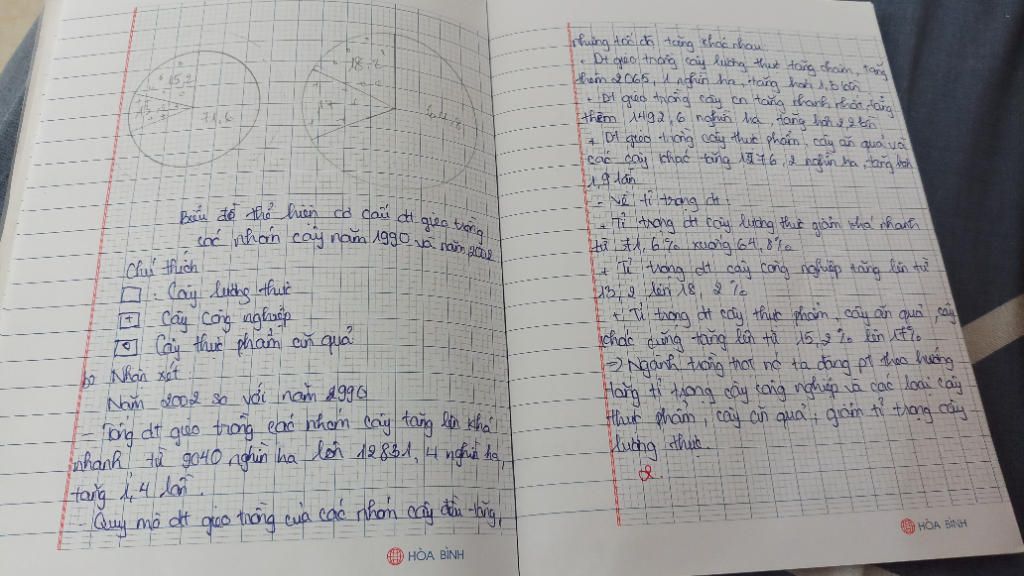 15,2
13,2
71,6
18,2
17
64,8
Biểu đồ thể hiện cơ cấu dt gieo trồng
các nhóm cây năm 1990 và năm 2002
Chú thích
: Cây lương thực
+ Cây công nghiệp
Cây thực phẩm ăn quả
b, Nhận xét
Năm 2002 so với năm 1990
- Tổng dt gieo trồng các nhóm cây tăng lên khá
nhanh từ 9040 nghìn ha lên 12831,4 nghìn ha,
tăng 1,4 lần.
- Quy mô dt gieo trồng của các nhóm cây đều tăng,
HÒA BÌNH
nhưng tốc độ tăng khác nhau
+ Dt gieo trồng cây lương thực tăng chậm, tăng
thêm 2065,1 nghìn ha, tăng hơn 1,3 lần
+ Dt gieo trồng cây cn tăng nhanh nhất, tăng
thêm 1492,6 nghìn ha, tăng hơn 2,2 lần
+ Dt gieo trồng cây thực phẩm, cây ăn quả và
các cây khác tăng nghìn ha, tăng hơn
1,9 lần
- Về tỉ trọng dt
+ Tỉ trọng dt cây lương thực giảm khá nhanh
từ 71,6% xuống 64,8%
+ Tỉ trọng dt cây công nghiệp tăng lên từ
13,2 lên 18,2%
+ Tỉ trọng dt cây thực phẩm, cây ăn quả, cây
khác cũng tăng lên từ 15,2% lên 17%
=> Ngành trồng trọt nc ta đang pt theo hướng
tăng tỉ trọng cây công nghiệp và các loại cây
thực phẩm, cây ăn quả, giảm tỉ trọng cây
lương thực.
2.
HÒA BÌNH